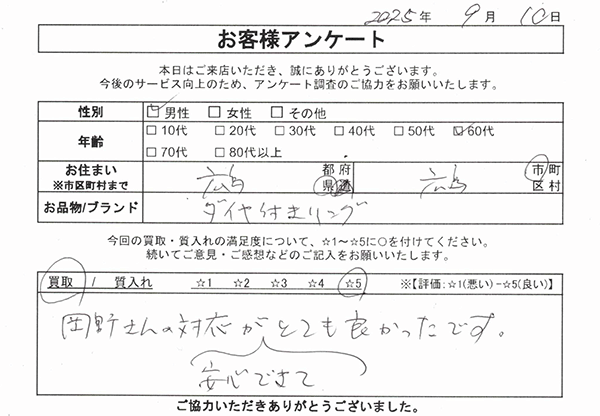 2025年 9月 10日
お客様アンケート
本日はご来店いただき、誠にありがとうございます。
今後のサービス向上のため、アンケート調査のご協力をお願いいたします。
性別 ☑ 男性 □ 女性 □ その他
年齢 □ 10代 □ 20代 □ 30代 □ 40代 □ 50代 ☑ 60代
□ 70代 □ 80代以上
お住まい ※市区町村まで 広島 都 府 県 道 広島 市 町 区 村
お品物/ブランド ダイヤ付きリング
今回の買取・質入れの満足度について、☆1~☆5に○を付けてください。
続いてご意見・ご感想などのご記入をお願いいたします。
買取 / 質入れ ☆1 ☆2 ☆3 ☆4 ☆5 ※【評価:☆1(悪い)-☆5(良い)】
岡野さんの対応がとても良かったです。
安心できて
ご協力いただきありがとうございました。